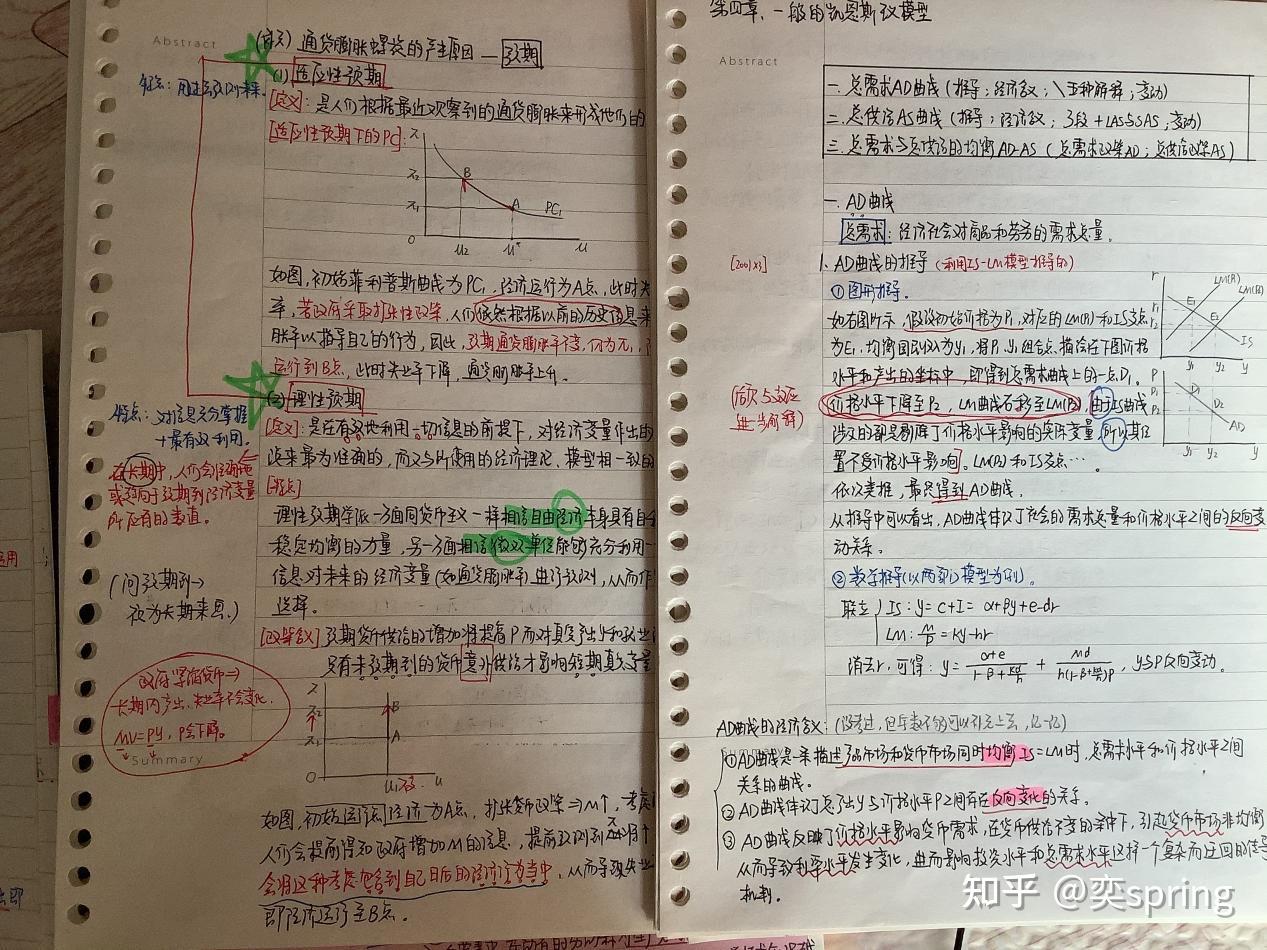 Abstract
通货膨胀螺旋的产生原因 — 预期
(1) 适应性预期
特点：用过去预测未来.
[定义]：是人们根据最近观察到的通货膨胀来形成他们的
[适应性预期下的PC]：
π
π₂
B
π₁
A
PC₁
0
u₂
u*
u
如图,初始菲利普斯曲线为PC₁,经济运行为A点,此时失
率,若政府采取扩张性政策,人们依然根据以前的历史信息来
胀率以指导自己的行为,因此,预期通货膨胀率不变,仍为π₁,
运行到B点,此时失业率下降,通货膨胀率上升。
(2) 理性预期
特点：对信息充分掌握
+最有效利用.
[定义]：是在有效地利用一切信息的前提下,对经济变量作出的
说来最为准确的,而又与所使用的经济理论、模型相一致的
在长期中,人们会准确地
或趋向于预期到经济变量
所应有的数值。
[特点]
理性预期学派一方面同货币主义一样相信自由经济本身具有自
稳定均衡的力量,另一方面相信微观单位能够充分利用一
信息对未来的经济变量(如通货膨胀率)进行预测,从而作
选择。
(问预期到→
视为长期来思.)
[政策含义]预期货币供给的增加将提高P而对真实产出y和就业
只有未预期到的货币意外供给才影响短期真实变量
政府紧缩货币⇒
长期内产出、失业率不会变化.
MV=PY, P会下降。
Summary
π
π₂
B
π₁
A
0
u
如图,初始经济为A点,扩张货币政策⇒M↑,
人们会提前得知政府增加M的信息,提前预测到
会将这种考虑包含到自己日后的经济活动当中,从而导致失业
即经济运行至B点。
第四章、一般的凯恩斯议模型
Abstract
一. 总需求AD曲线 (推导；经济含义；\五种解释；变动)
二. 总供给AS曲线 (推导；经济含义；3段+LAS与SAS；变动)
三. 总需求与总供给的均衡AD-AS (总需求政策AD；总供给政策AS)
一. AD曲线
总需求：经济社会对商品和劳务的需求总量.
1. AD曲线的推导 (利用IS-LM模型推导的)
① 图形推导.
如右图所示,假设初始价格为P₁,对应的LM(P₁)和IS交点
为E₁,均衡国民收入为y₁,将P₁、y₁组合点,描绘在下图价格
水平和产出的坐标中,即得到总需求曲线上的一点D₁.
价格水平下降至P₂, LM曲线右移至LM(P₂), 由于IS曲线
涉及的都是剔除了价格水平影响的实际变量,所以其位
置不受价格水平影响]. LM(P₂)和IS交点….
依次类推,最终得到AD曲线.
从推导中可以看出,AD曲线体现了社会的需求总量和价格水平之间的反向变
动关系。
r
LM(P₁)
LM(P₂)
r₁
E₁
r₂
E₂
IS
y₁ y₂ y
P
P₁
D₁
P₂
D₂
AD
y₁ y₂ y
② 数学推导(以两部门模型为例).
联立 IS: y=c+I= α+βy+e-dr
LM: M/P = ky-hr
消去r,可得: y= (α+e)/(1-β+kd/h) + Md/(h(1-β+kd/h)P), y与P反向变动.
AD曲线的经济含义：(没考过,但字数不够可以补充上去,记一记)
Summary
① AD曲线是一条描述产品市场和货币市场同时均衡IS=LM时,总需求水平和价格水平之间
关系的曲线。
② AD曲线体现了总产出y与价格水平P之间存在反向变化的关系.
③ AD曲线反映了价格水平影响货币需求,在货币供给不变的条件下,引起货币市场非均衡
从而导致利率水平发生变化,进而影响投资水平和总需求水平这样一个复杂而迂回的传导
机制.
知乎 @奕spring